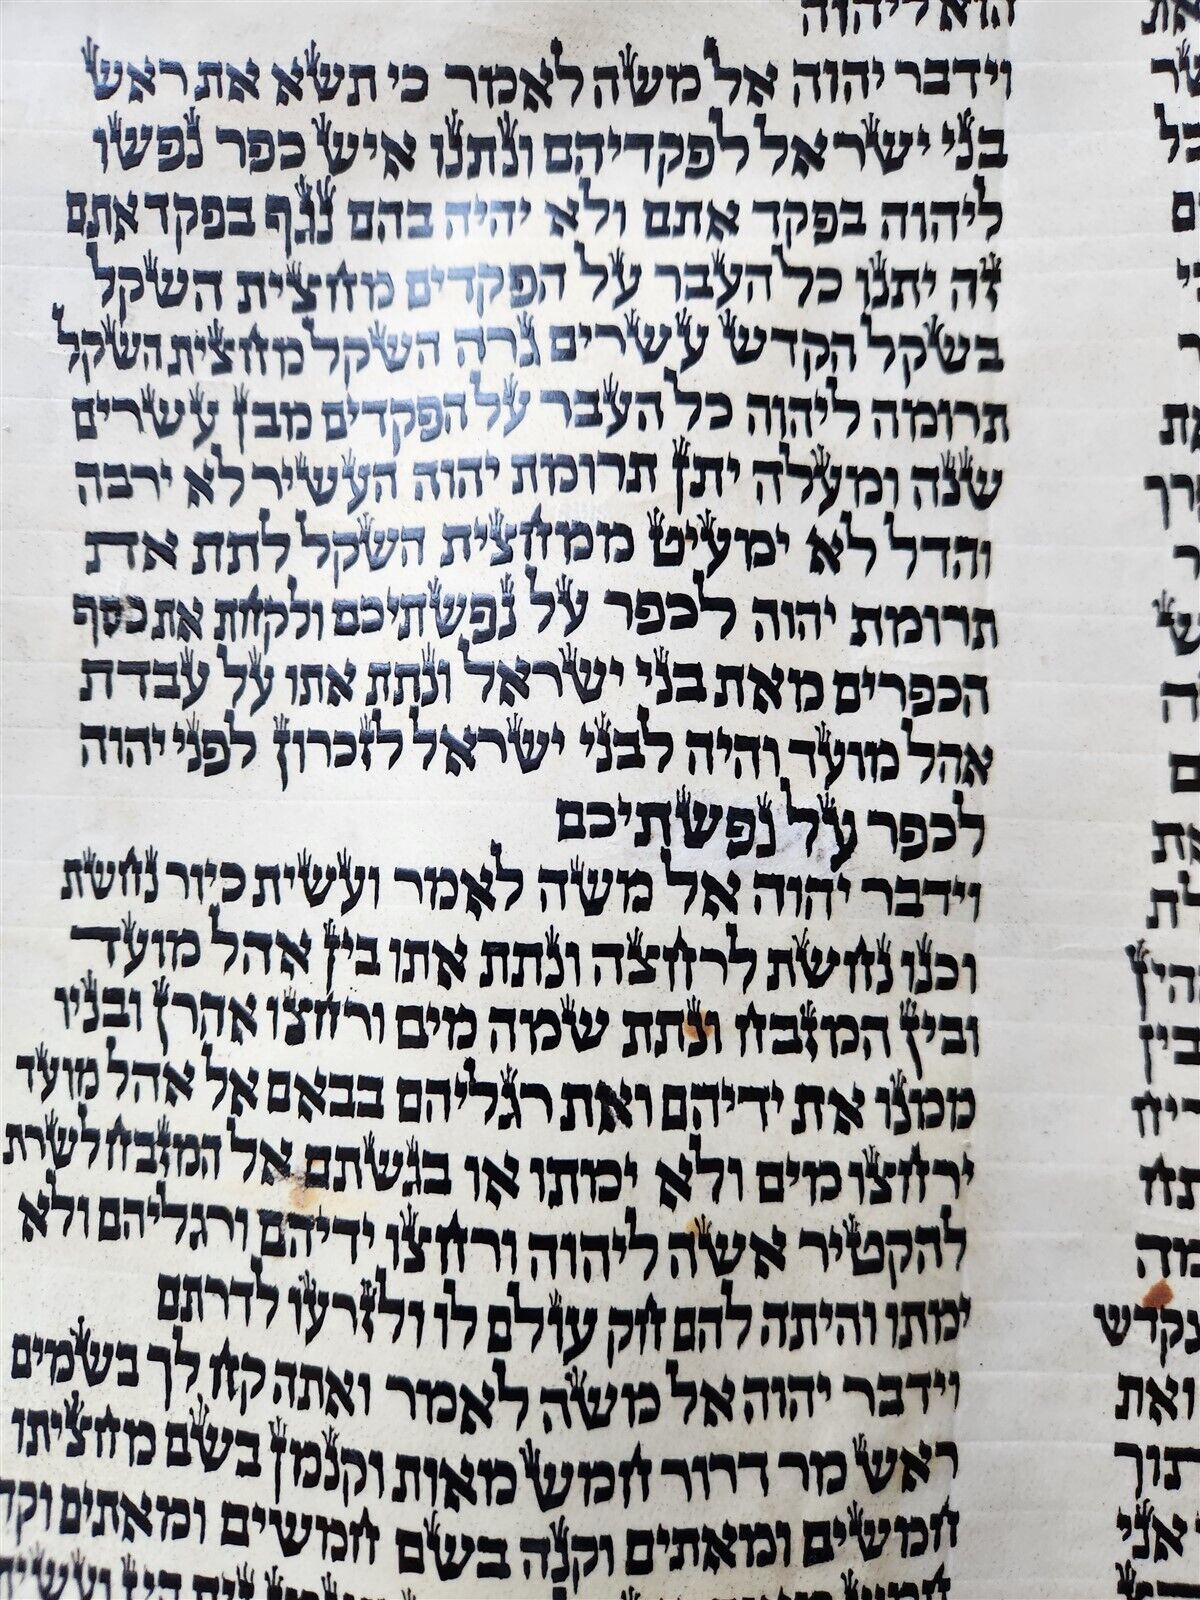 הוא ליהוה
וידבר יהוה אל משה לאמר כי תשא את ראש
בני ישראל לפקדיהם ונתנו איש כפר נפשו
ליהוה בפקד אתם ולא יהיה בהם נגף בפקד אתם
זה יתנו כל העבר על הפקדים מחצית השקל
בשקל הקדש עשרים גרה השקל מחצית השקל
תרומה ליהוה כל העבר על הפקדים מבן עשרים
שנה ומעלה יתן תרומת יהוה העשיר לא ירבה
והדל לא ימעיט ממחצית השקל לתת את
תרומת יהוה לכפר על נפשתיכם ולקחת את כסף
הכפרים מאת בני ישראל ונתת אתו על עבדת
אהל מועד והיה לבני ישראל לזכרון לפני יהוה
לכפר על נפשתיכם
וידבר יהוה אל משה לאמר ועשית כיור נחשת
וכנו נחשת לרחצה ונתת אתו בין אהל מועד
ובין המזבח ונתת שמה מים ורחצו אהרן ובניו
ממנו את ידיהם ואת רגליהם בבאם אל אהל מועד
ירחצו מים ולא ימתו או בגשתם אל המזבח לשרת
להקטיר אשה ליהוה ורחצו ידיהם ורגליהם ולא
ימתו והיתה להם חק עולם לו ולזרעו לדרתם
וידבר יהוה אל משה לאמר ואתה קח לך בשמים
ראש מר דרור חמש מאות וקנמן בשם מחציתו
חמשים ומאתים וקנה בשם חמשים ומאתים